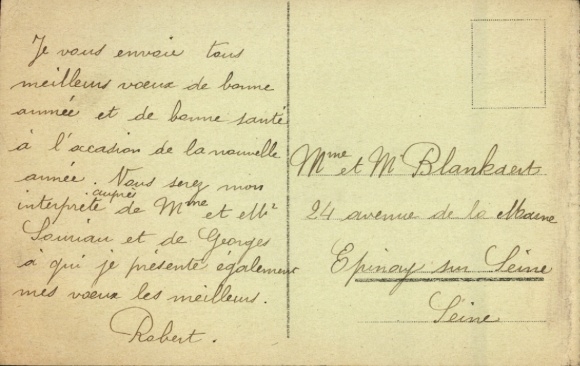 Je vous envoie tous
meilleurs vœux de bonne
année et de bonne santé
à l'occasion de la nouvelle
année. Vous serez mon
interprète auprès de Mme et Mr
Sauriau et de Georges
à qui je présente également
mes vœux les meilleurs.
Robert.
Mme et Mr Blankaert
24 avenue de la Marne
Epinay sur Seine
Seine